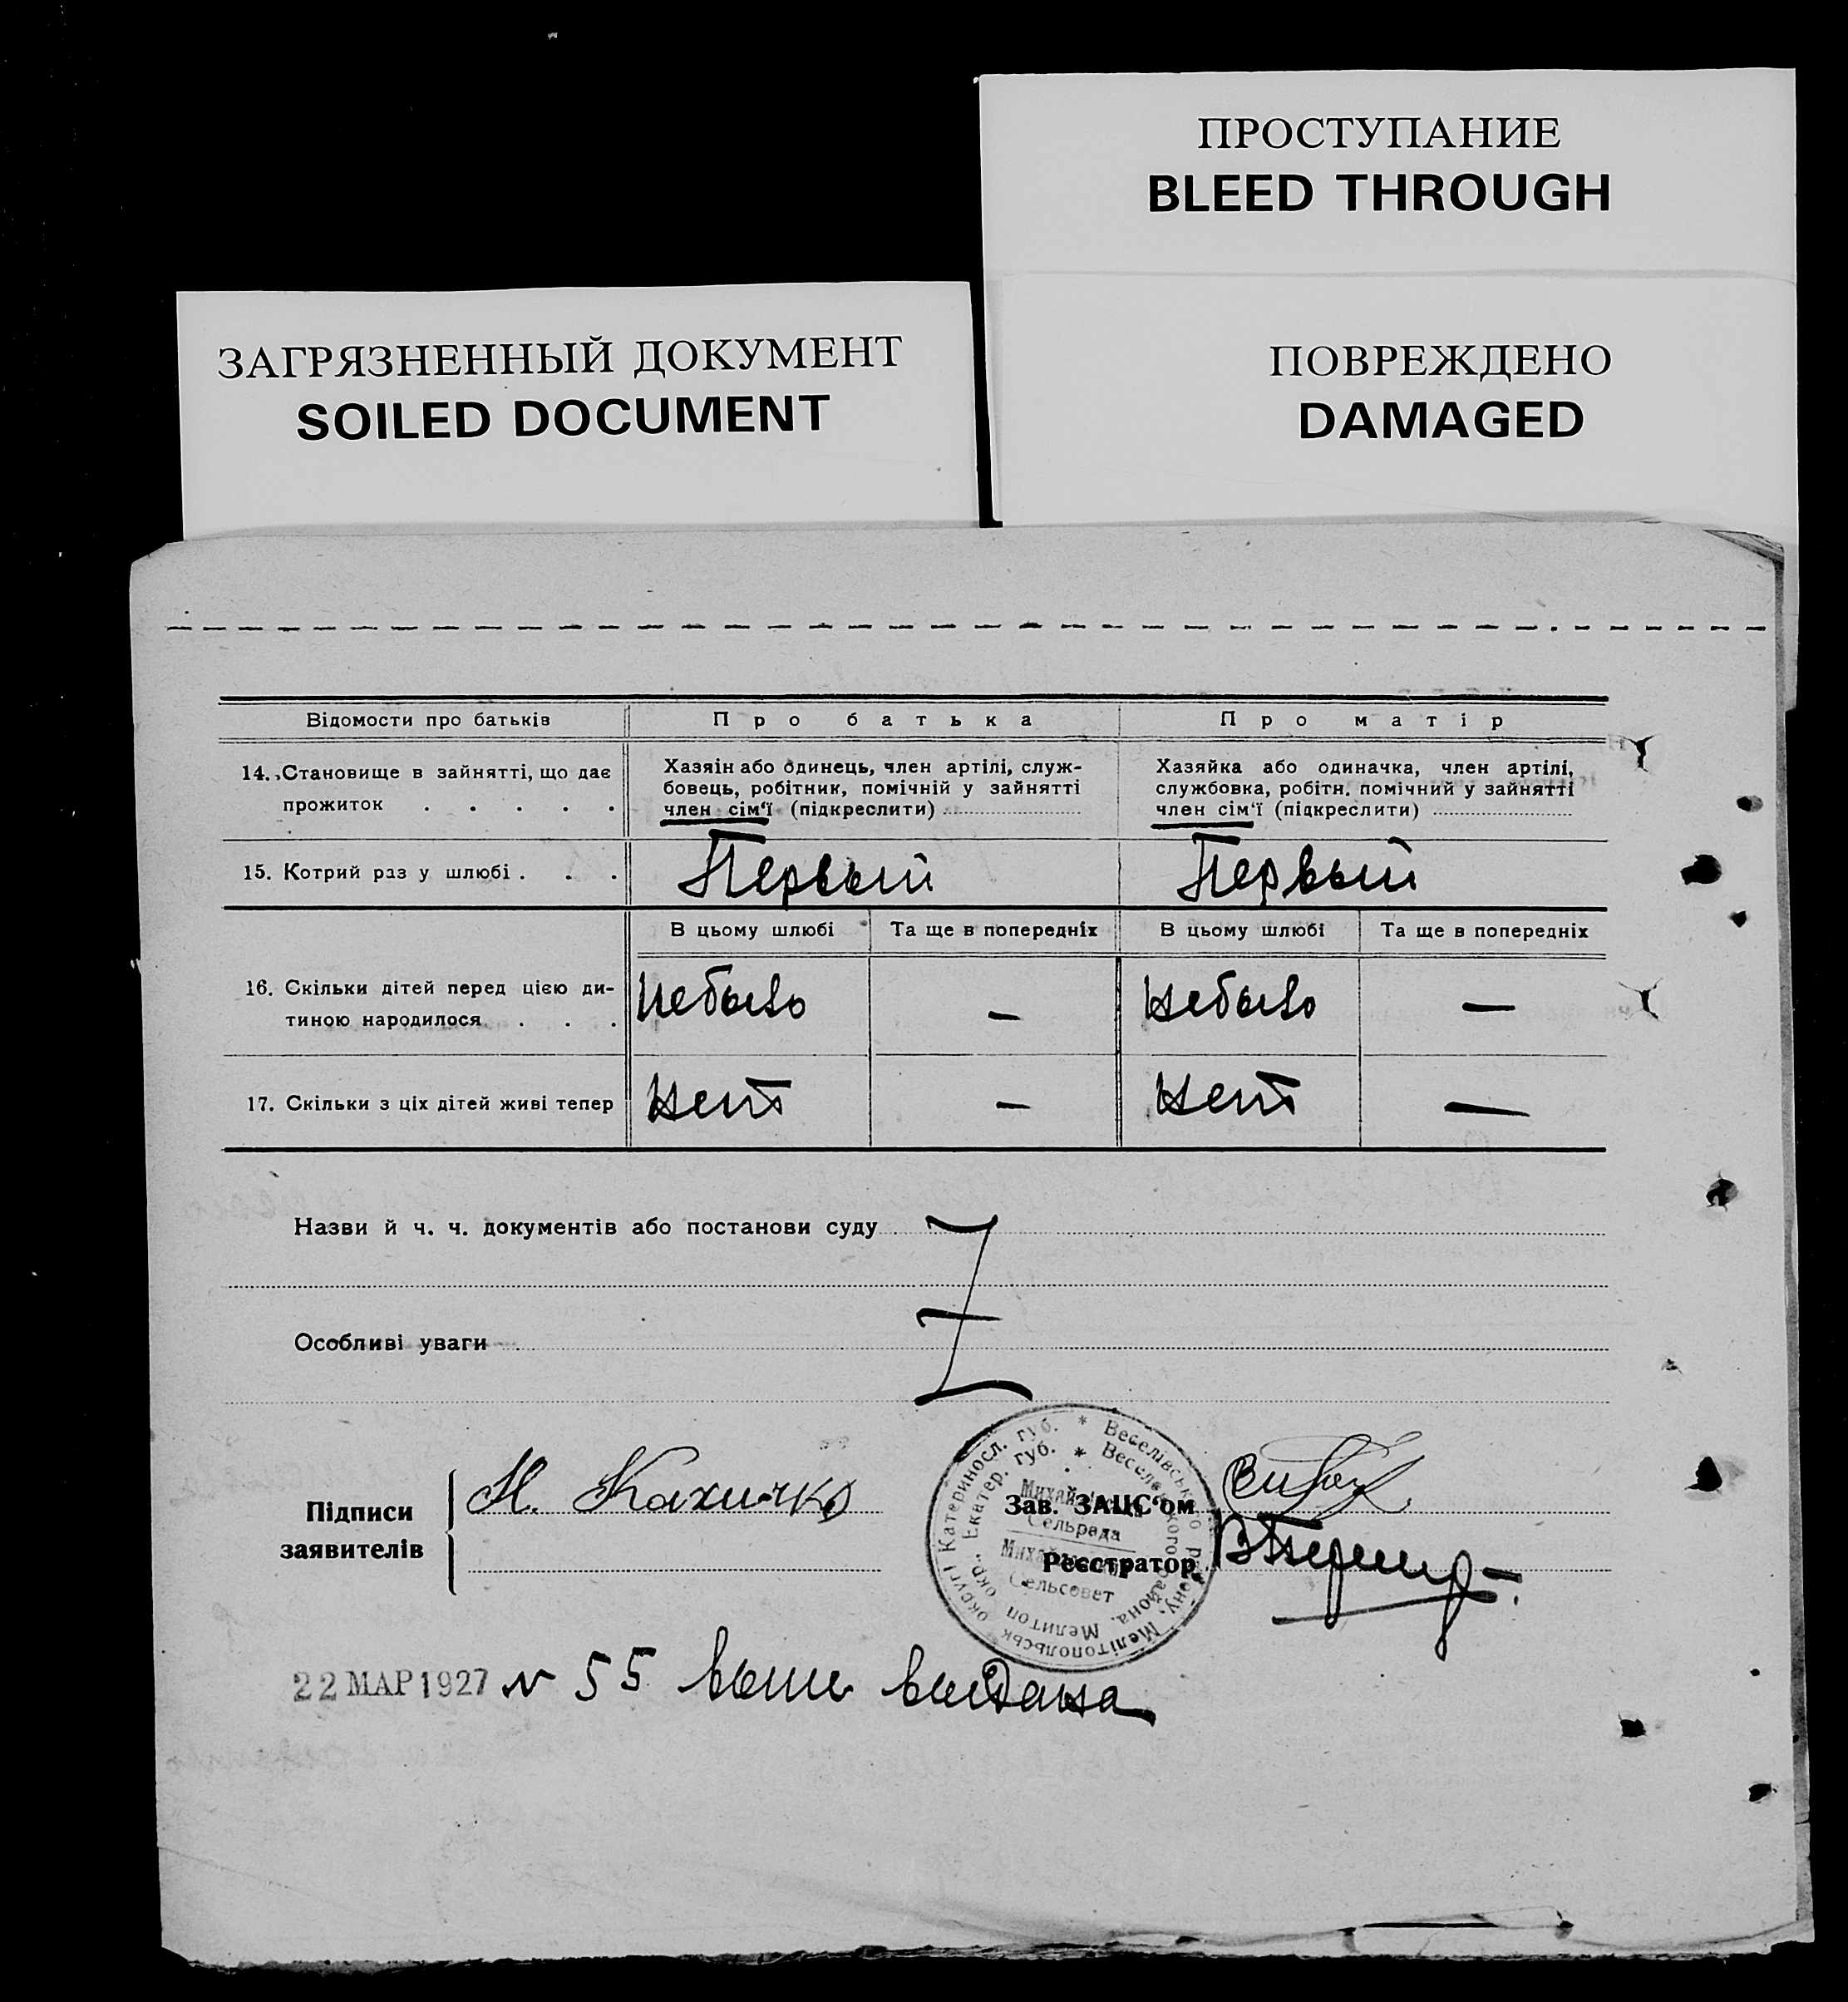 ПРОСТУПАНИЕ
BLEED THROUGH
ЗАГРЯЗНЕННЫЙ ДОКУМЕНТ
SOILED DOCUMENT
ПОВРЕЖДЕНО
DAMAGED
Відомости про батьків Про батька Про матір
14. Становище в зайнятті, що дає
прожиток . . . . .
Хазяін або одинець, член артілі, служ-
бовець, робітник, помічній у зайнятті
член сім'ї (підкреслити)
Хазяйка або одиначка, член артілі,
службовка, робітн. помічний у зайнятті
член сім'ї (підкреслити)
15. Котрий раз у шлюбі . . . Первый Первый
В цьому шлюбі Та ще в попередніх В цьому шлюбі Та ще в попередніх
16. Скільки дітей перед цією ди-
тиною народилося . . . Небыло — Небыло —
17. Скільки з ціх дітей живі тепер Нет — Нет —
Назви й ч. ч. документів або постанови суду
Особливі уваги
Підписи
заявителів
Н.
Зав. ЗАЦС'ом
Реєстратор
* Веселівського району, Мелітопольськ округі Катериносл. губ.
* Веселовского района, Мелитоп окр. Екатер. губ.
Сельрада
Сельсовет
22 МАР 1927 N 55 выпис выдана